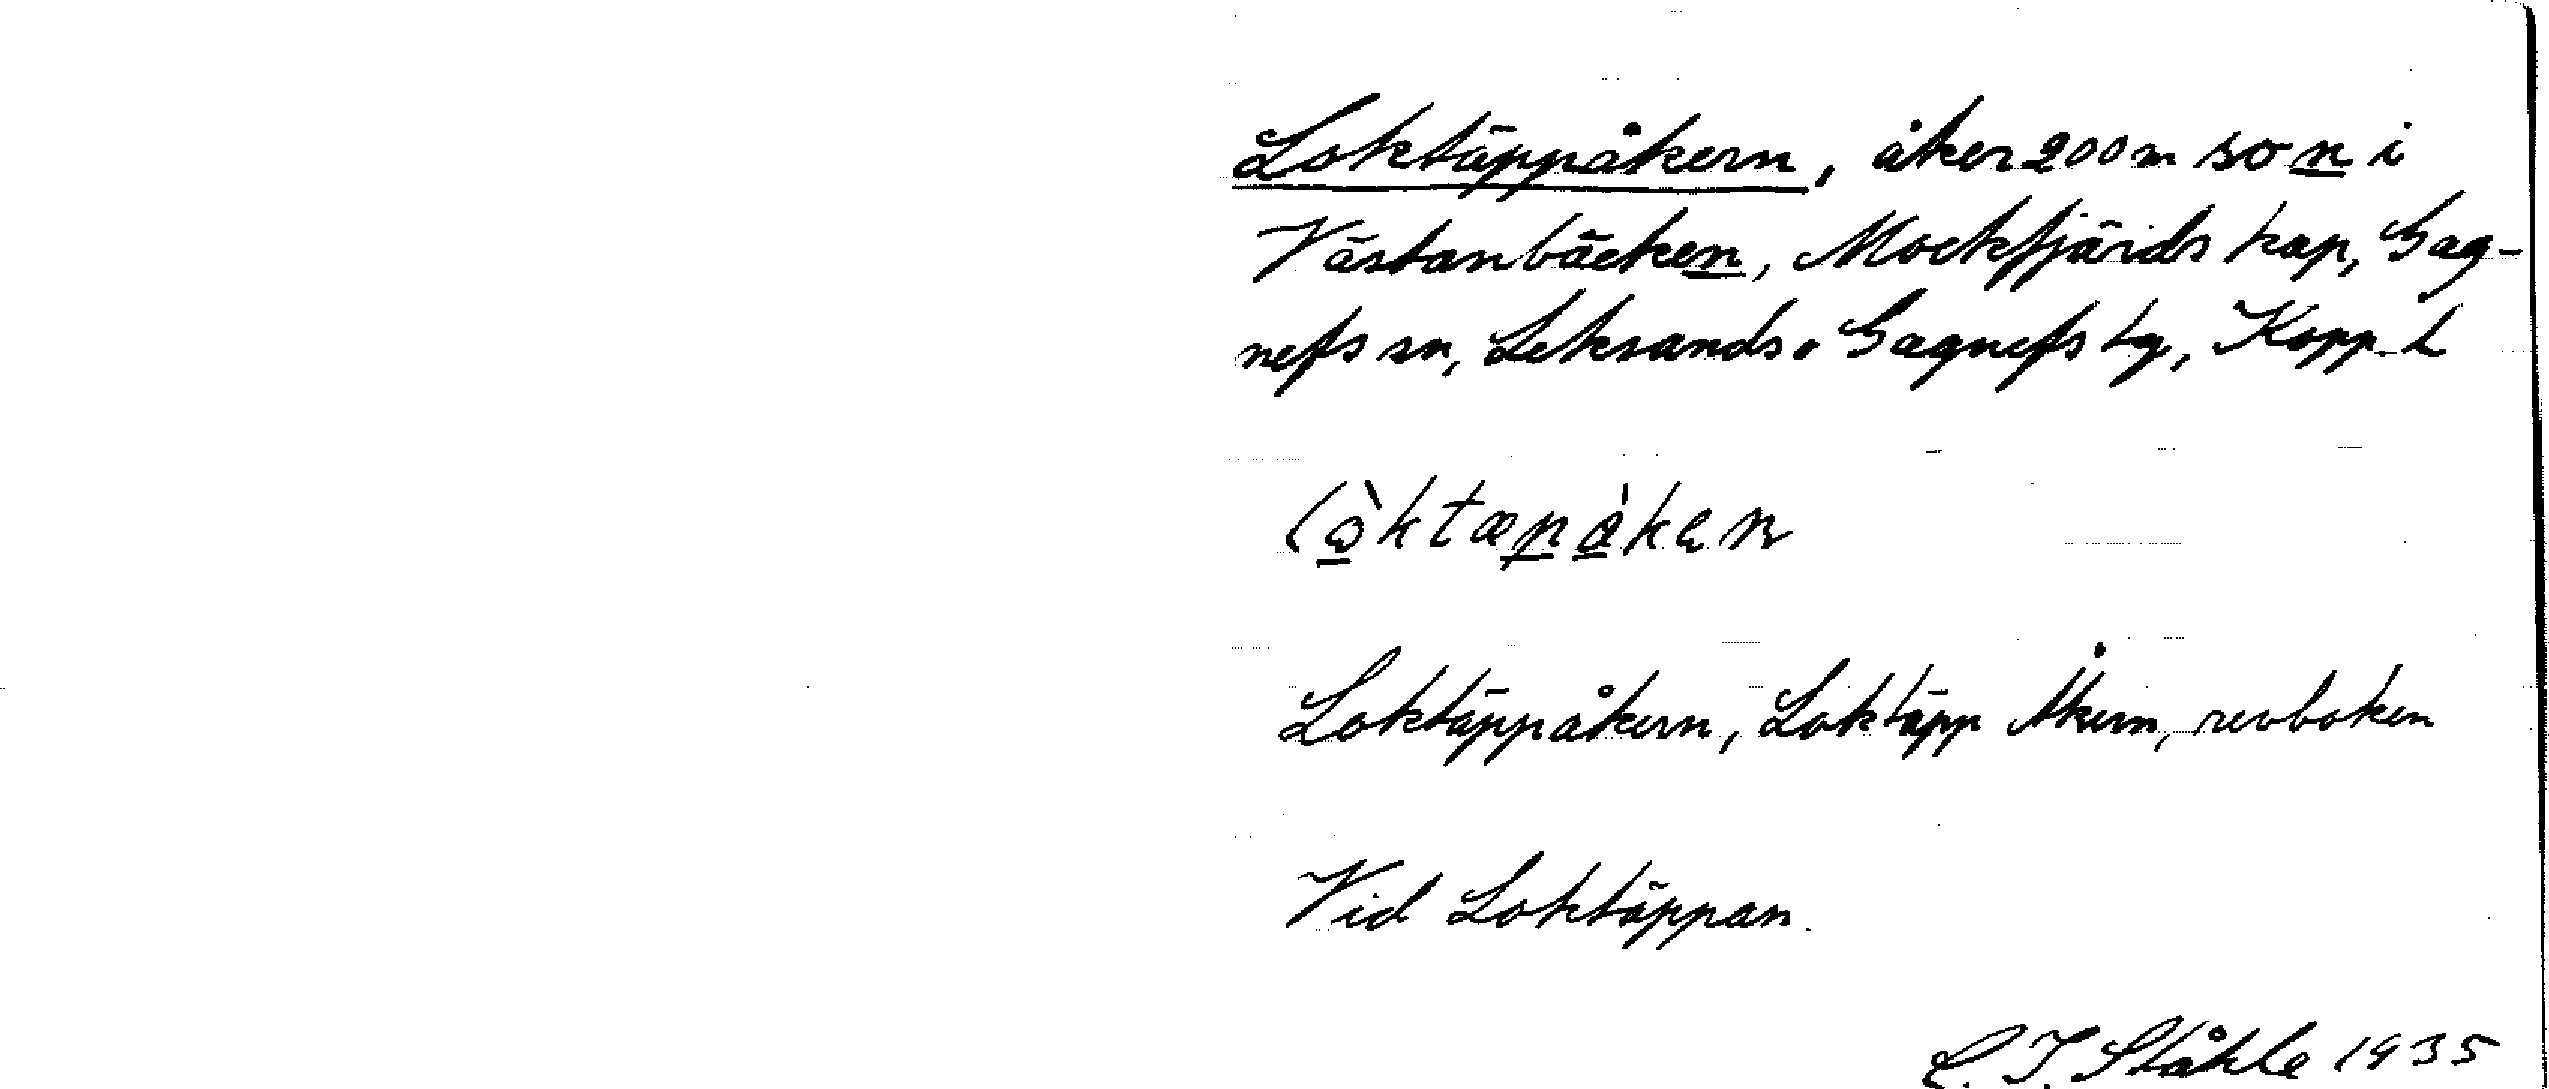 Loktäppåkern, åker 200 m so n i
Västanbäcken, Mockfjärds kap, Gag-
nefs sn, Leksands o Gagnefs tg, Kopp. l
Loktäppåkern, Loktäpp Åkern, revboken
Vid Loktäppan.
C. I. Ståhle 1935